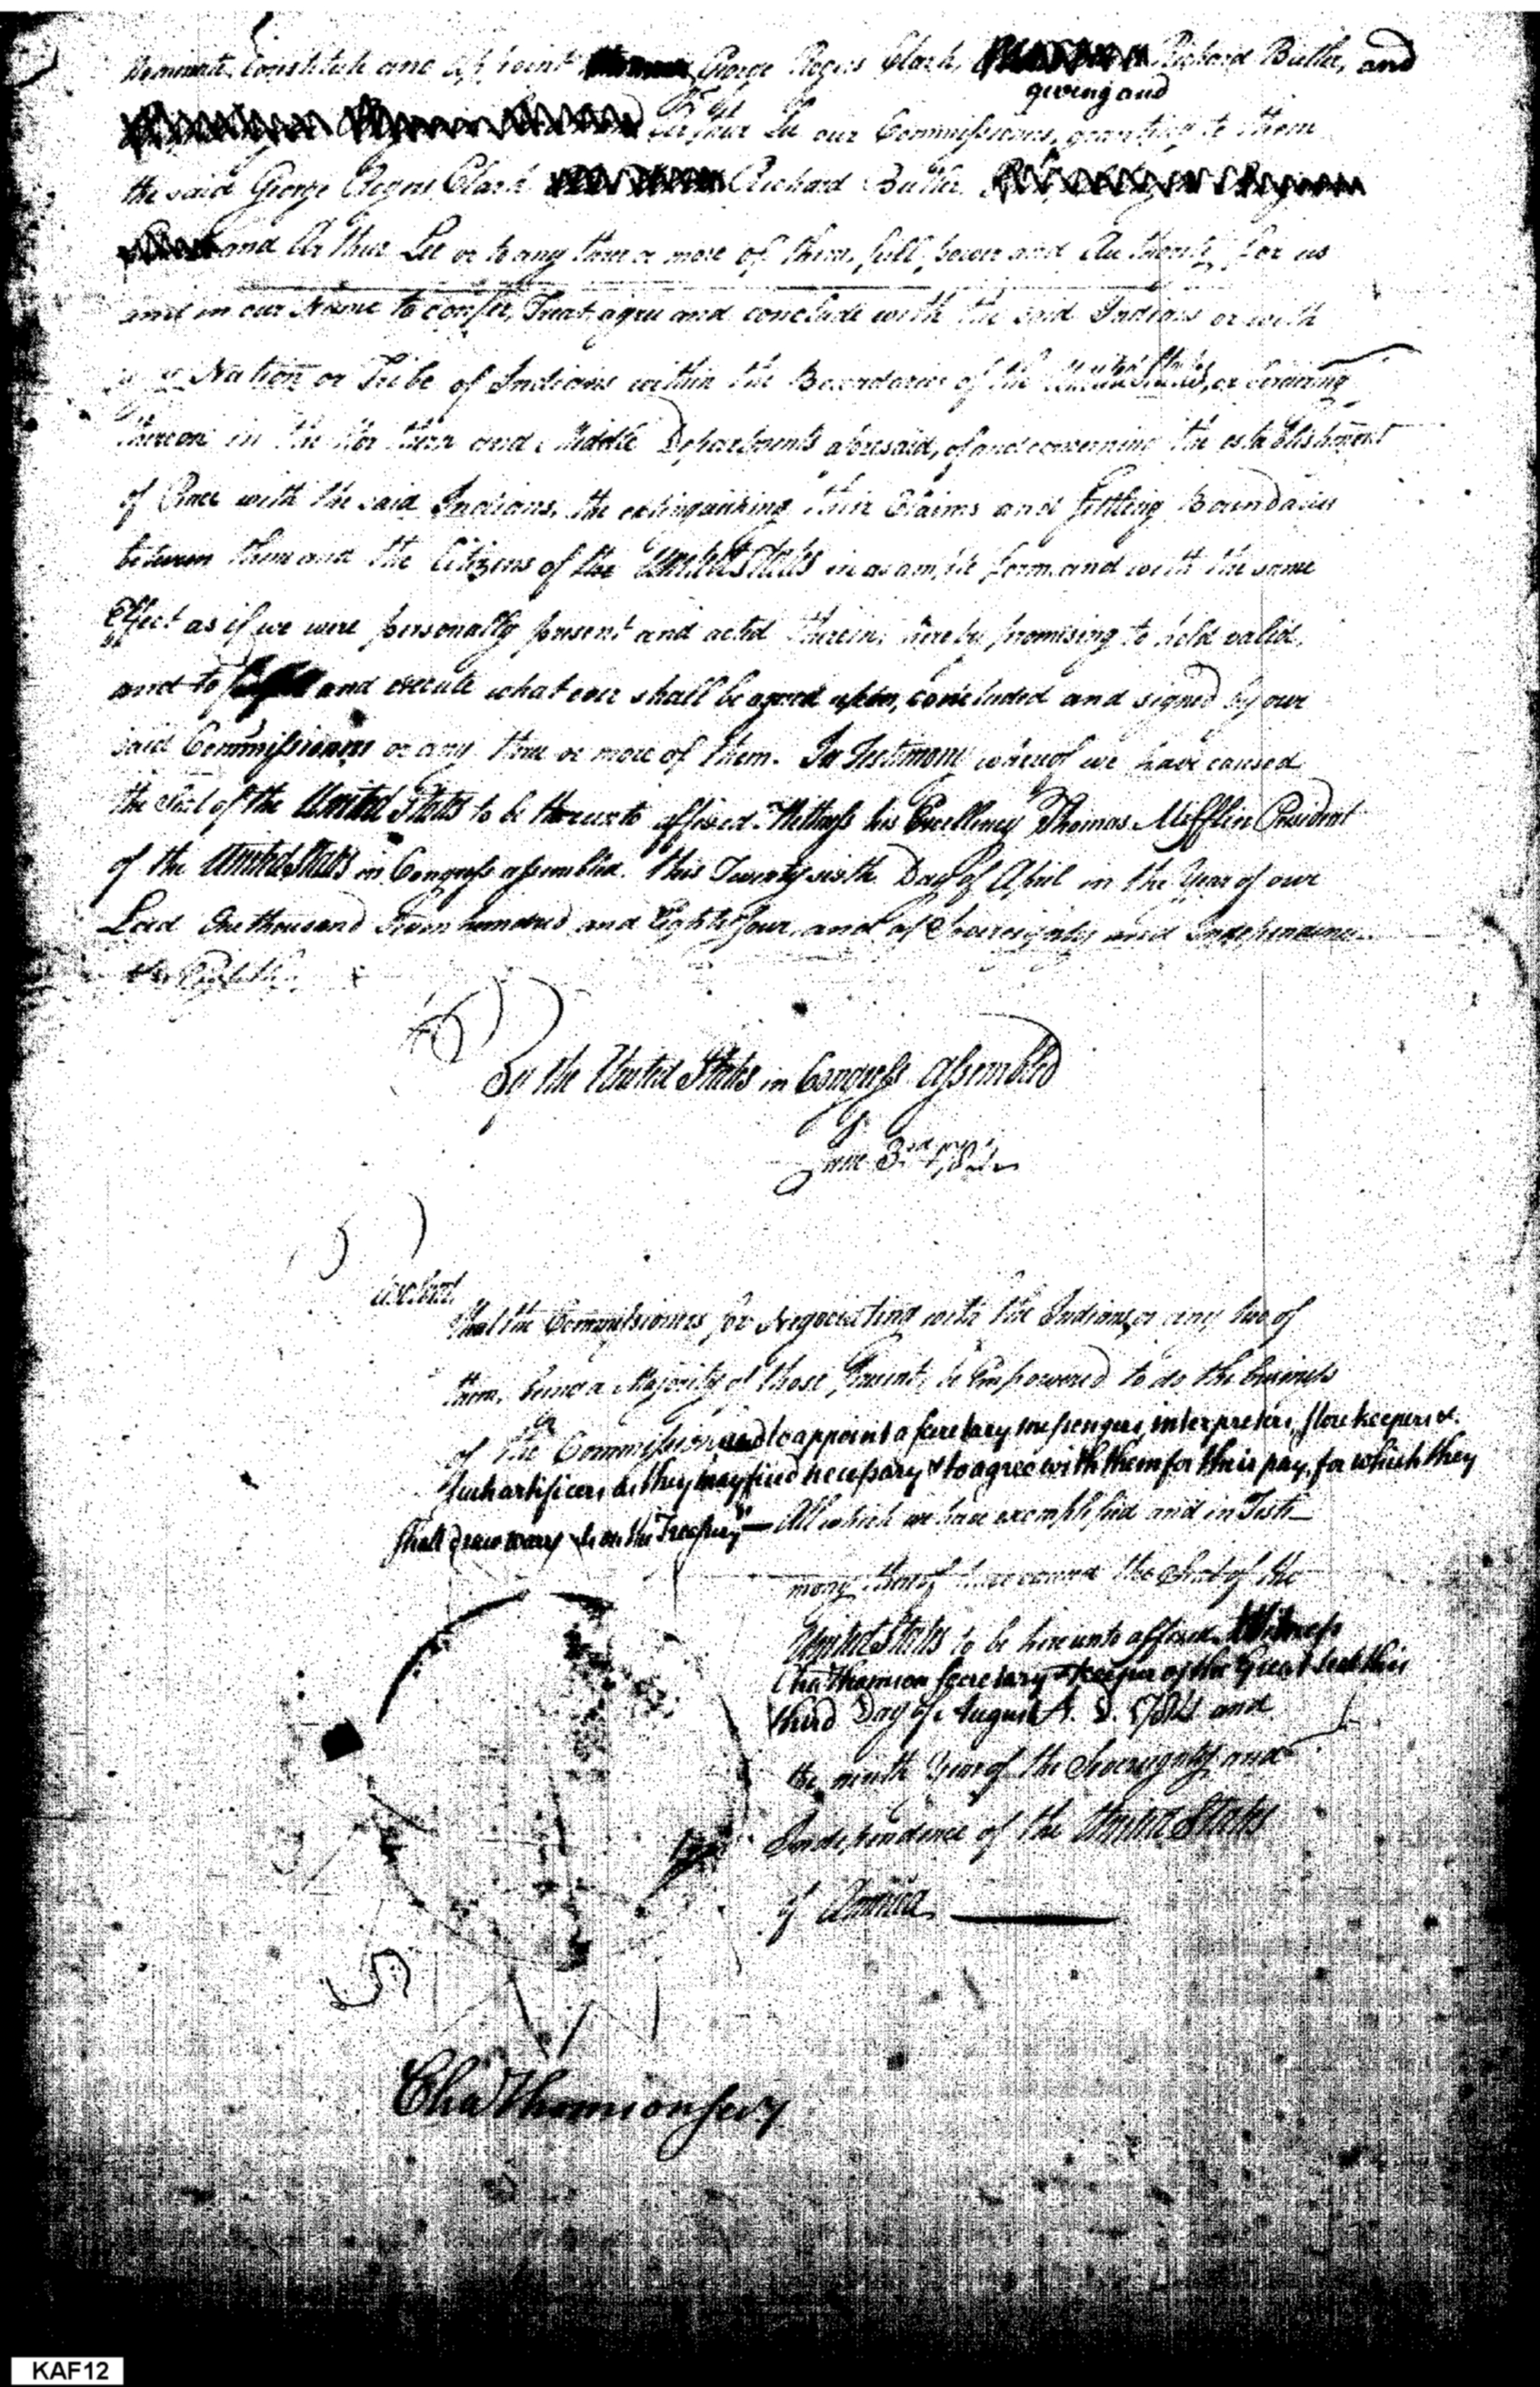 Nominate, Constitute and appoint George Rogers Clark, Richard Butler, and
giving and
Arthur Lee our Commissioners, granting to them
the said George Rogers Clark Richard Butler
and Arthur Lee or to any three or more of them, full power and Authority for us
and in our Name to confer, Treat, agree and conclude with the said Indians or with
any Nation or Tribe of Indians within the Boundaries of the United States, or bordering
thereon in the Northern and Middle Departments aforesaid, of and concerning the establishment
of Peace with the said Indians, the extinguishing their Claims and settling Boundaries
between them and the Citizens of the United States in as ample form, and with the same
Effect as if we were personally present and acted therein, hereby promising to hold valid,
and to and execute what ever shall be agreed upon, concluded and signed by our
said Commissioners or any three or more of them. In Testimony whereof we have caused
the Seal of the United States to be thereunto affixed. Witness his Excellency Thomas Mifflin President
of the United States in Congress assembled. this Twenty sixth Day of April in the Year of our
Lord One thousand Seven hundred and Eighty four, and of Sovereignty and Independence
the Eighth.
By the United States in Congress Assembled
June 3rd 1784
Resolved
That the Commissioners for Negociating with the Indians, or any two of
them, being a Majority of those present, be Empowered to do the business
of the Commission, and to appoint a secretary messengers, interpreters, store keepers &
such artificers as they may find necessary & to agree with them for their pay, for which they
shall draw warrants on the Treasury" — All which we have exemplified and in Testi-
mony thereof have caused the Seal of the
United States to be hereunto affixed. Witness
Cha Thomson Secretary & keeper of the Great Seal this
third Day of August A. D. 1784 and
the ninth Year of the Sovereignty and
Independence of the United States
of America
Cha Thomson Secy
KAF12